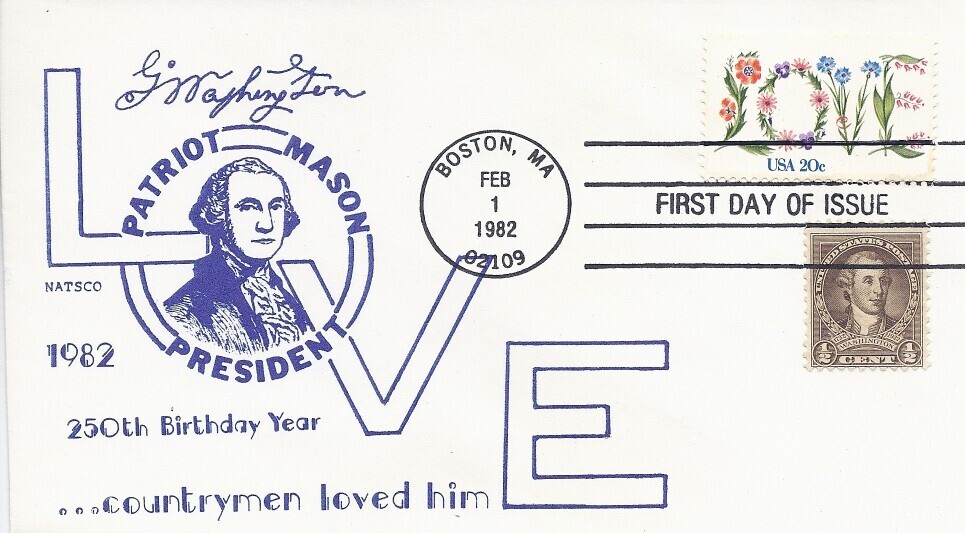 G. Washington
LOVE
PATRIOT MASON
PRESIDENT
NATSCO
1982
250th Birthday Year
...countrymen loved him
BOSTON, MA
FEB
1
1982
02109
LOVE
USA 20c
FIRST DAY OF ISSUE
UNITED STATES POSTAGE
WASHINGTON
1/2 CENT 1/2